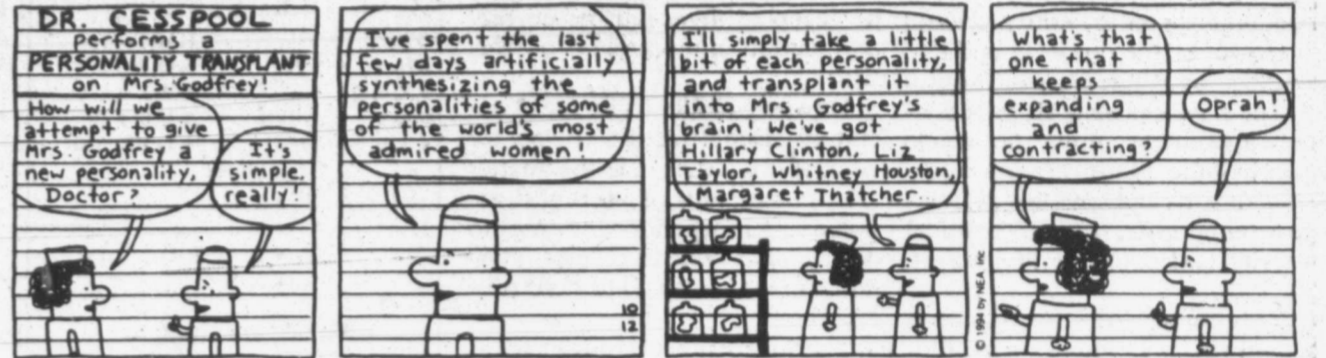 DR. CESSPOOL
performs a
PERSONALITY TRANSPLANT
on Mrs. Godfrey!
How will we
attempt to give
Mrs. Godfrey a
new personality,
Doctor?
It's
simple,
really!
I've spent the last
few days artificially
synthesizing the
personalities of some
of the world's most
admired women!
10
12
I'll simply take a little
bit of each personality,
and transplant it
into Mrs. Godfrey's
brain! We've got
Hillary Clinton, Liz
Taylor, Whitney Houston,
Margaret Thatcher...
© 1994 by NEA, Inc
What's that
one that
keeps
expanding
and
contracting?
Oprah!